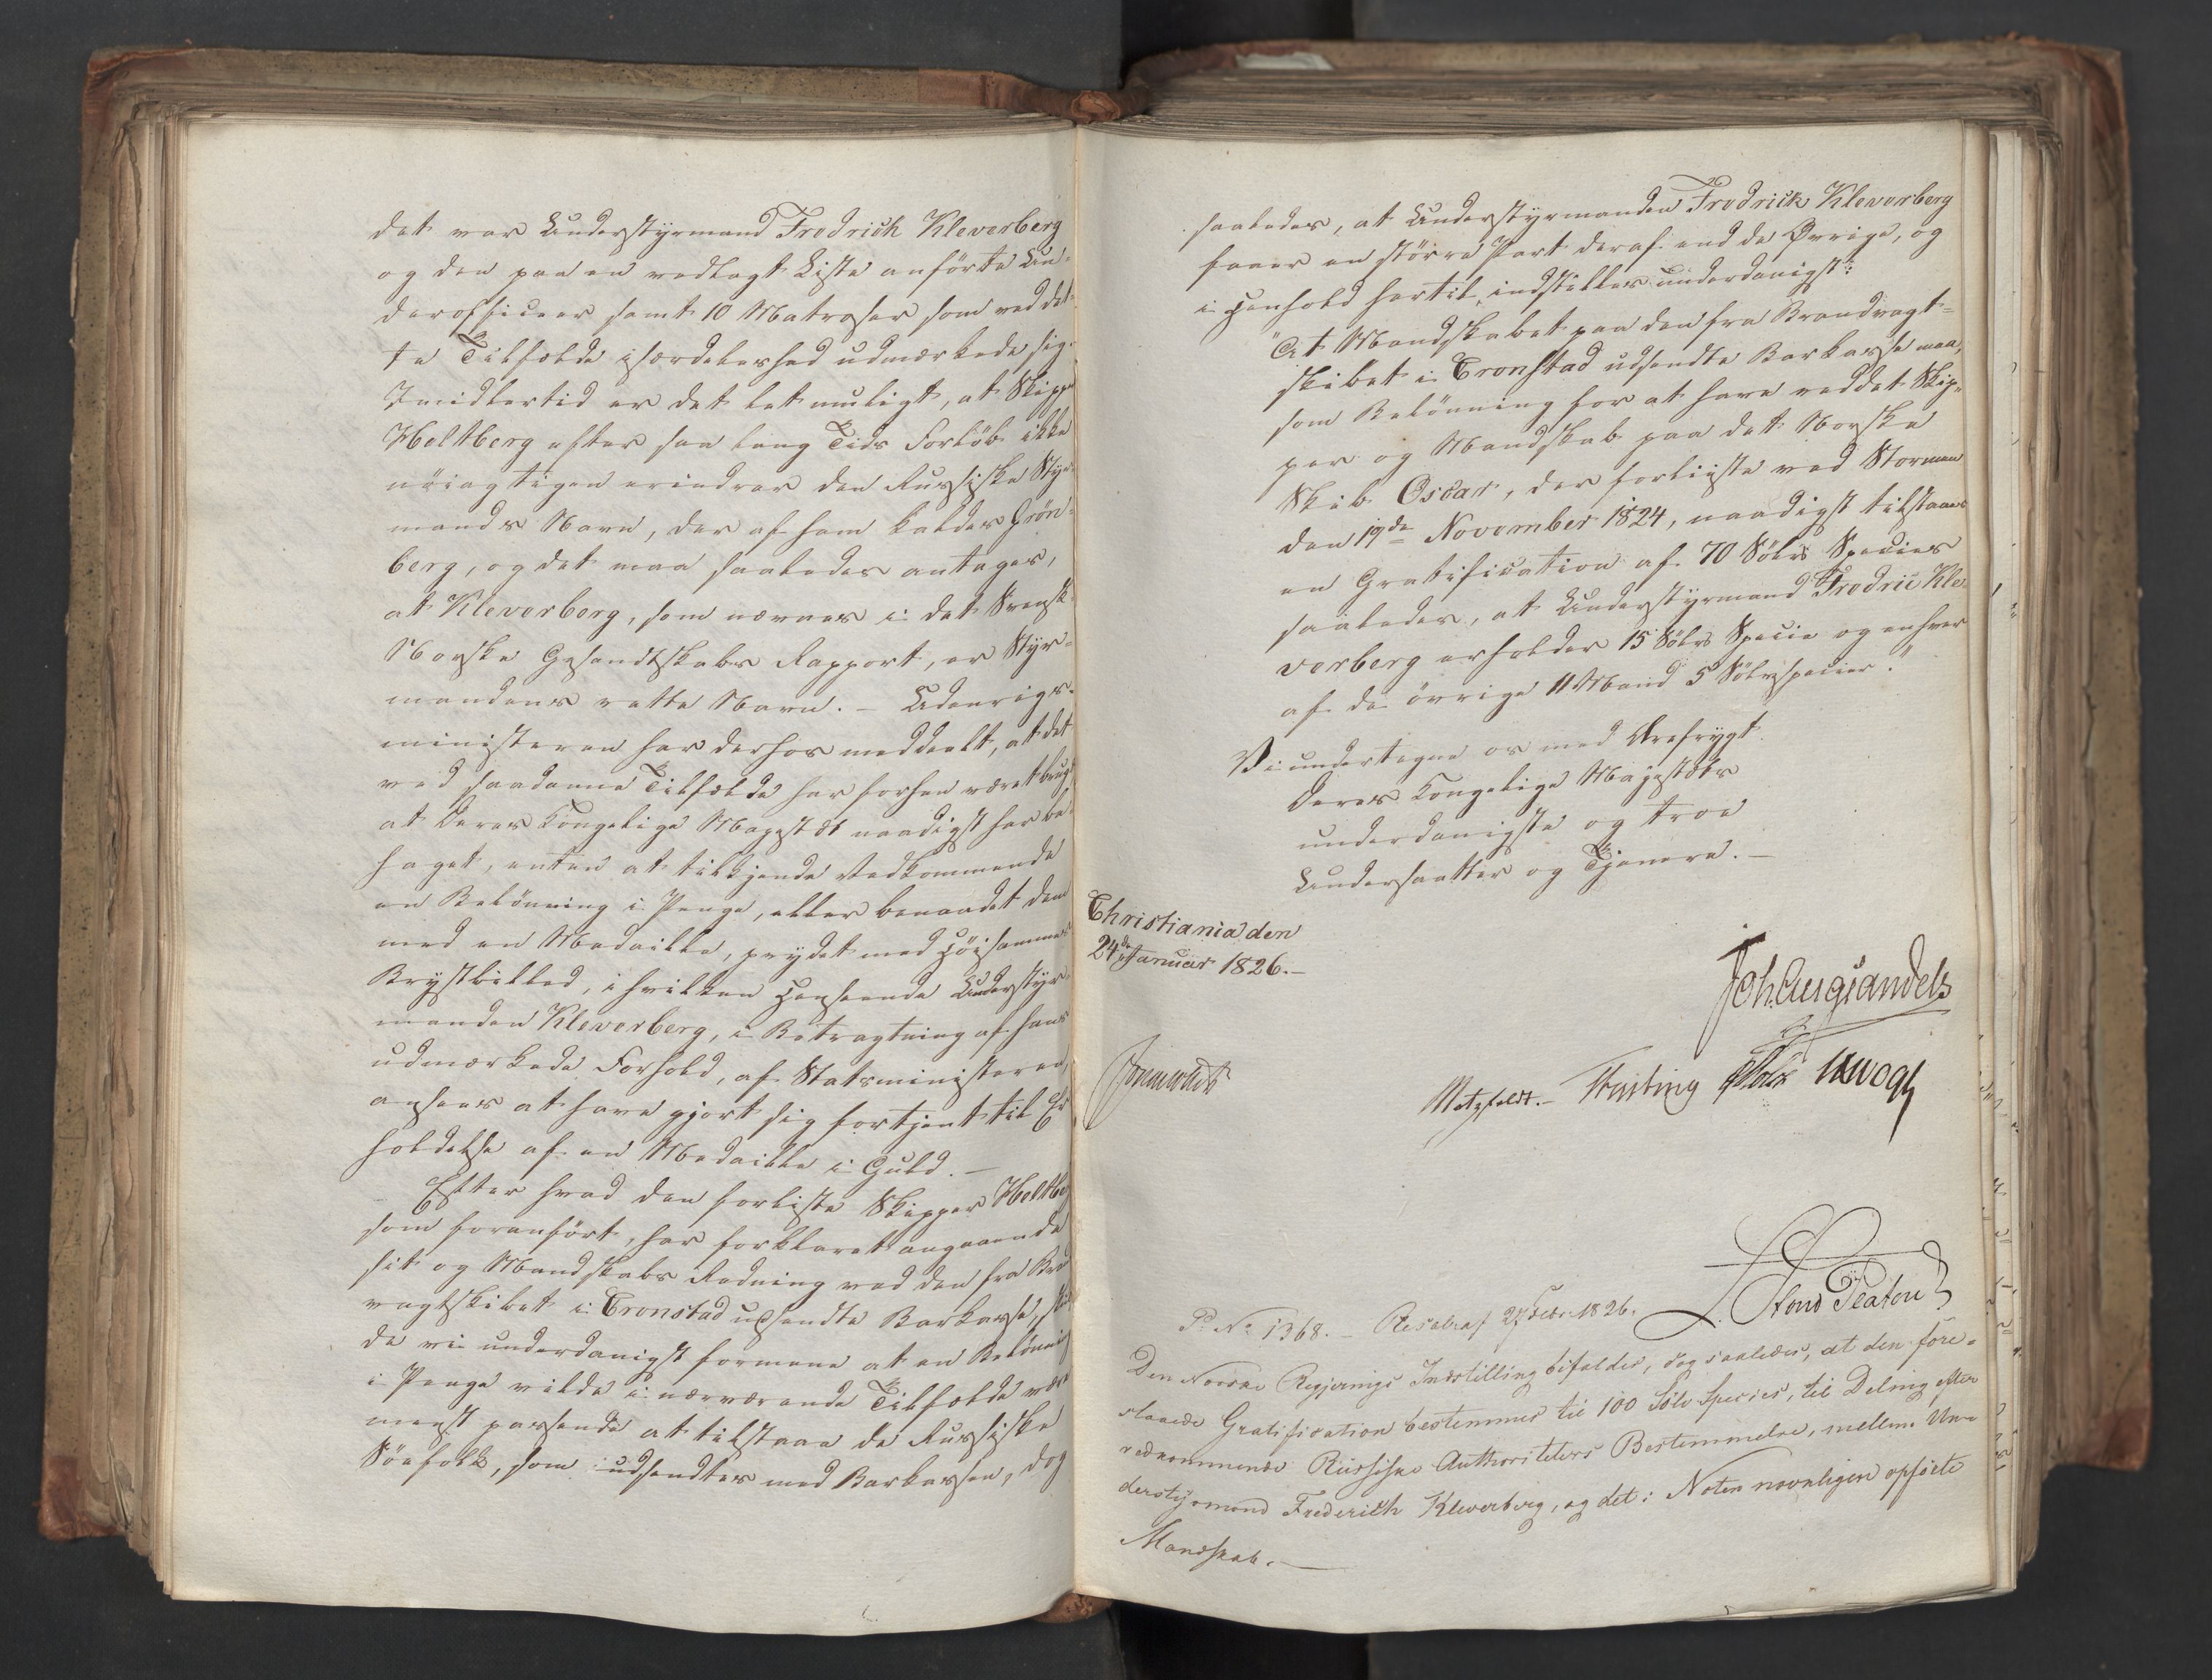 det var Understyrmand Fredrich Kleverberg
og den paa en vedlagt Liste anförte Un-
derofficeer samt 10 Matroser som ved det-
te Tilfælde isærdeleshed udmærkede sig.
Imidlertid er det let muligt, at Skipper
Heltberg efter saa lang Tids Forløb ikke
nöiagtigen erindrer den Russiske Styr-
mands Navn, der af ham kaldes Grön-
berg, og det maa saaledes antages,
at Kleverberg, som nævnes i det Svensk-
Norske Gesandtskabs Rapport, er Styr-
mandens rette Navn. – Udenrigs-
ministeren har derhos meddeelt, at det
ved saadanne Tilfælde har forhen været brugt
at Deres Kongelige Majestæt naadigst har be-
haget, enten at tilkjende Vedkommende
en Belönning i Penge, eller benaadet dem
med en Medaille, prydet med Höisammes
Brystbilled, i hvilken Henseende Understyr-
manden Kleverberg, i Betragtning af hans
udmærkede Forhold, af Statsministeren,
ansees at have gjort sig fortjent til Er-
holdelse af en Medaille i Guld. –
Efter hvad den forliste Skipper Heltberg
som foranfört, har forklaret angaaende
sit og Mandskabs Redning ved den fra Brand-
vagtskibet i Cronstad udsendte Barkasse, skul-
de vi underdanigst formene at en Belönning
i Penge vilde i nærværende Tilfælde være
meest passende at tilstaae de Russiske
Söefolk, som udsendtes med Barkassen, dog
saaledes, at Understyrmanden Fredrich Kleverberg
faaer en större Part deraf end de Øvrige, og
i Henhold hertil, indstilles underdanigst:
"At Mandskabet paa den fra Brandvagt-
skibet i Cronstad udsendte Barkasse maa,
som Belönning for at have reddet Skip-
per og Mandskab paa det Norske
Skib Oscar, der forliiste ved Stormen
den 19de November 1824, naadigst tilstaaes
en Gratification af 70 Sölv Species
saaledes, at Understyrmand Fredric Kle-
verberg erholder 15 Sölv Specie og enhver
af de övrige 11 Mand 5 Sölvspecier."
Vi undertegne os med Ærefrygt
Deres Kongelige Majestæts
underdanigste og troe
Undersaatter og Tjenere. –
Christiania den
24de Januar 1826. –
Joh. Aug. Sandels
Motzfeldt. – Fasting
P. No 1368. – Resol. af 27 Febr. 1826.
Den Norske Regjerings Indstilling bifaldes, dog saaledes, at den fore-
slaaede Gratification bestemmes til 100 Sölv Species, til Deling efter
vedkommende Russiske Authoriteters Bestemmelse, mellem Un-
derstyrmand Frederich Kleverberg, og det i Noten navnligen opförte
Mandskab. –